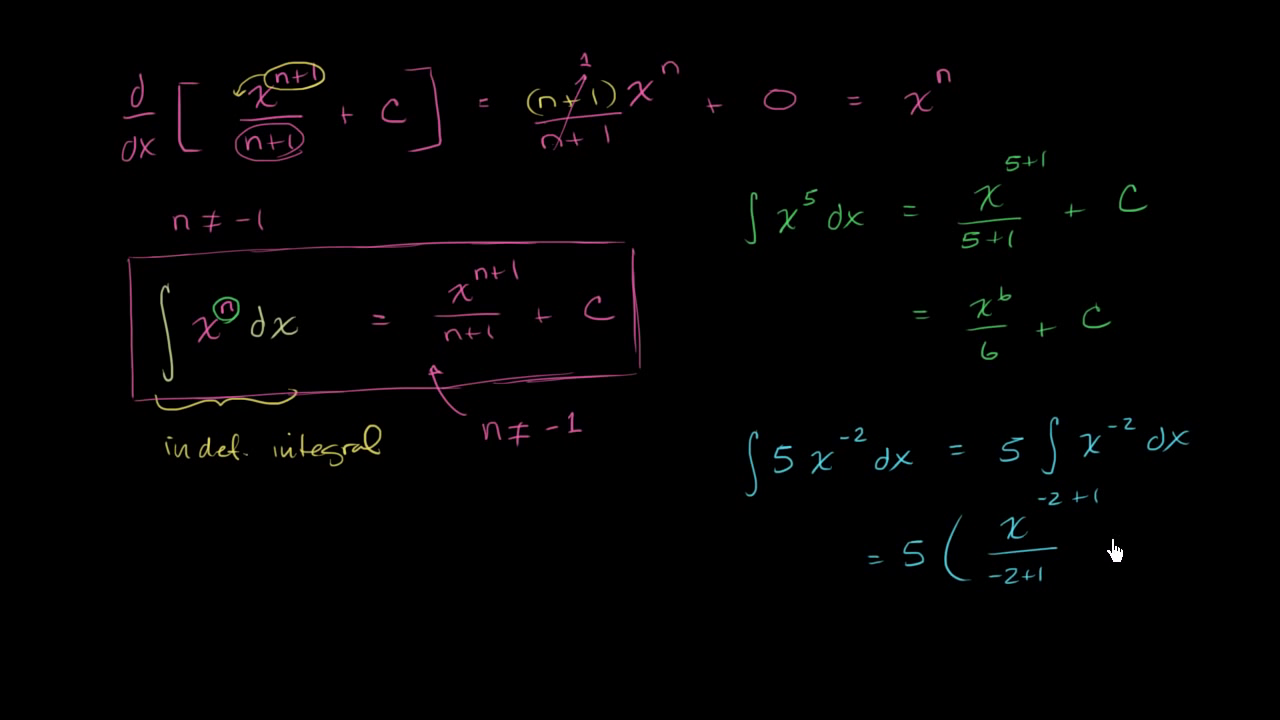 d/dx [ x^(n+1)/(n+1) + C ] = (n+1)x^n/(n+1) + 0 = x^n
1
n ≠ -1
∫ x^n dx = x^(n+1)/(n+1) + C
n ≠ -1
indef. integral
∫ x^5 dx = x^(5+1)/(5+1) + C
= x^6/6 + C
∫ 5 x^-2 dx = 5 ∫ x^-2 dx
= 5 ( x^(-2+1)/(-2+1)